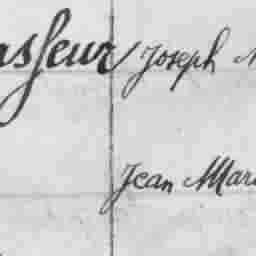 asseur Joseph M
Jean Mari